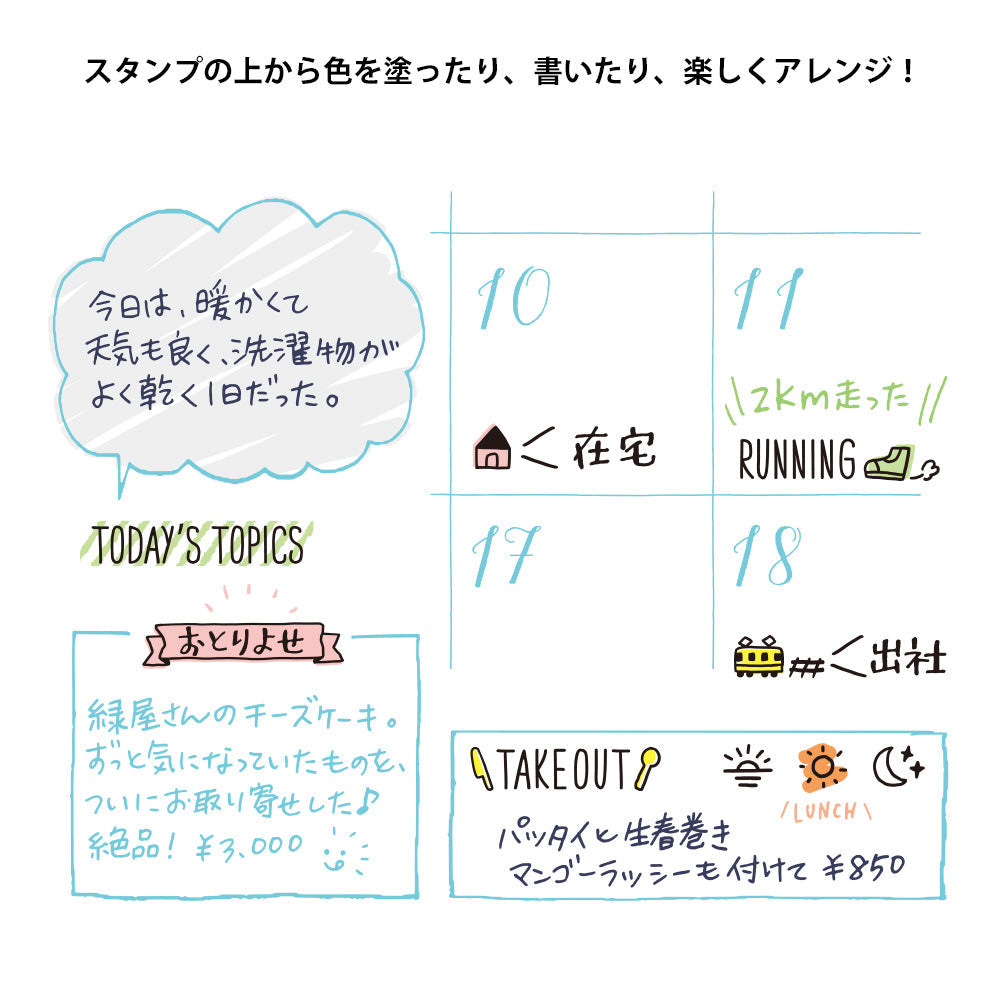 スタンプの上から色を塗ったり、書いたり、楽しくアレンジ！
今日は、暖かくて
天気も良く、洗濯物が
よく乾く1日だった。
TODAY'S TOPICS
おとりよせ
緑屋さんのチーズケーキ。
ずっと気になっていたものを、
ついにお取り寄せした♪
絶品！ ¥3,000
10
在宅
11
2km走った
RUNNING
17
18
出社
TAKEOUT
LUNCH
パッタイと生春巻き
マンゴーラッシーも付けて ¥850